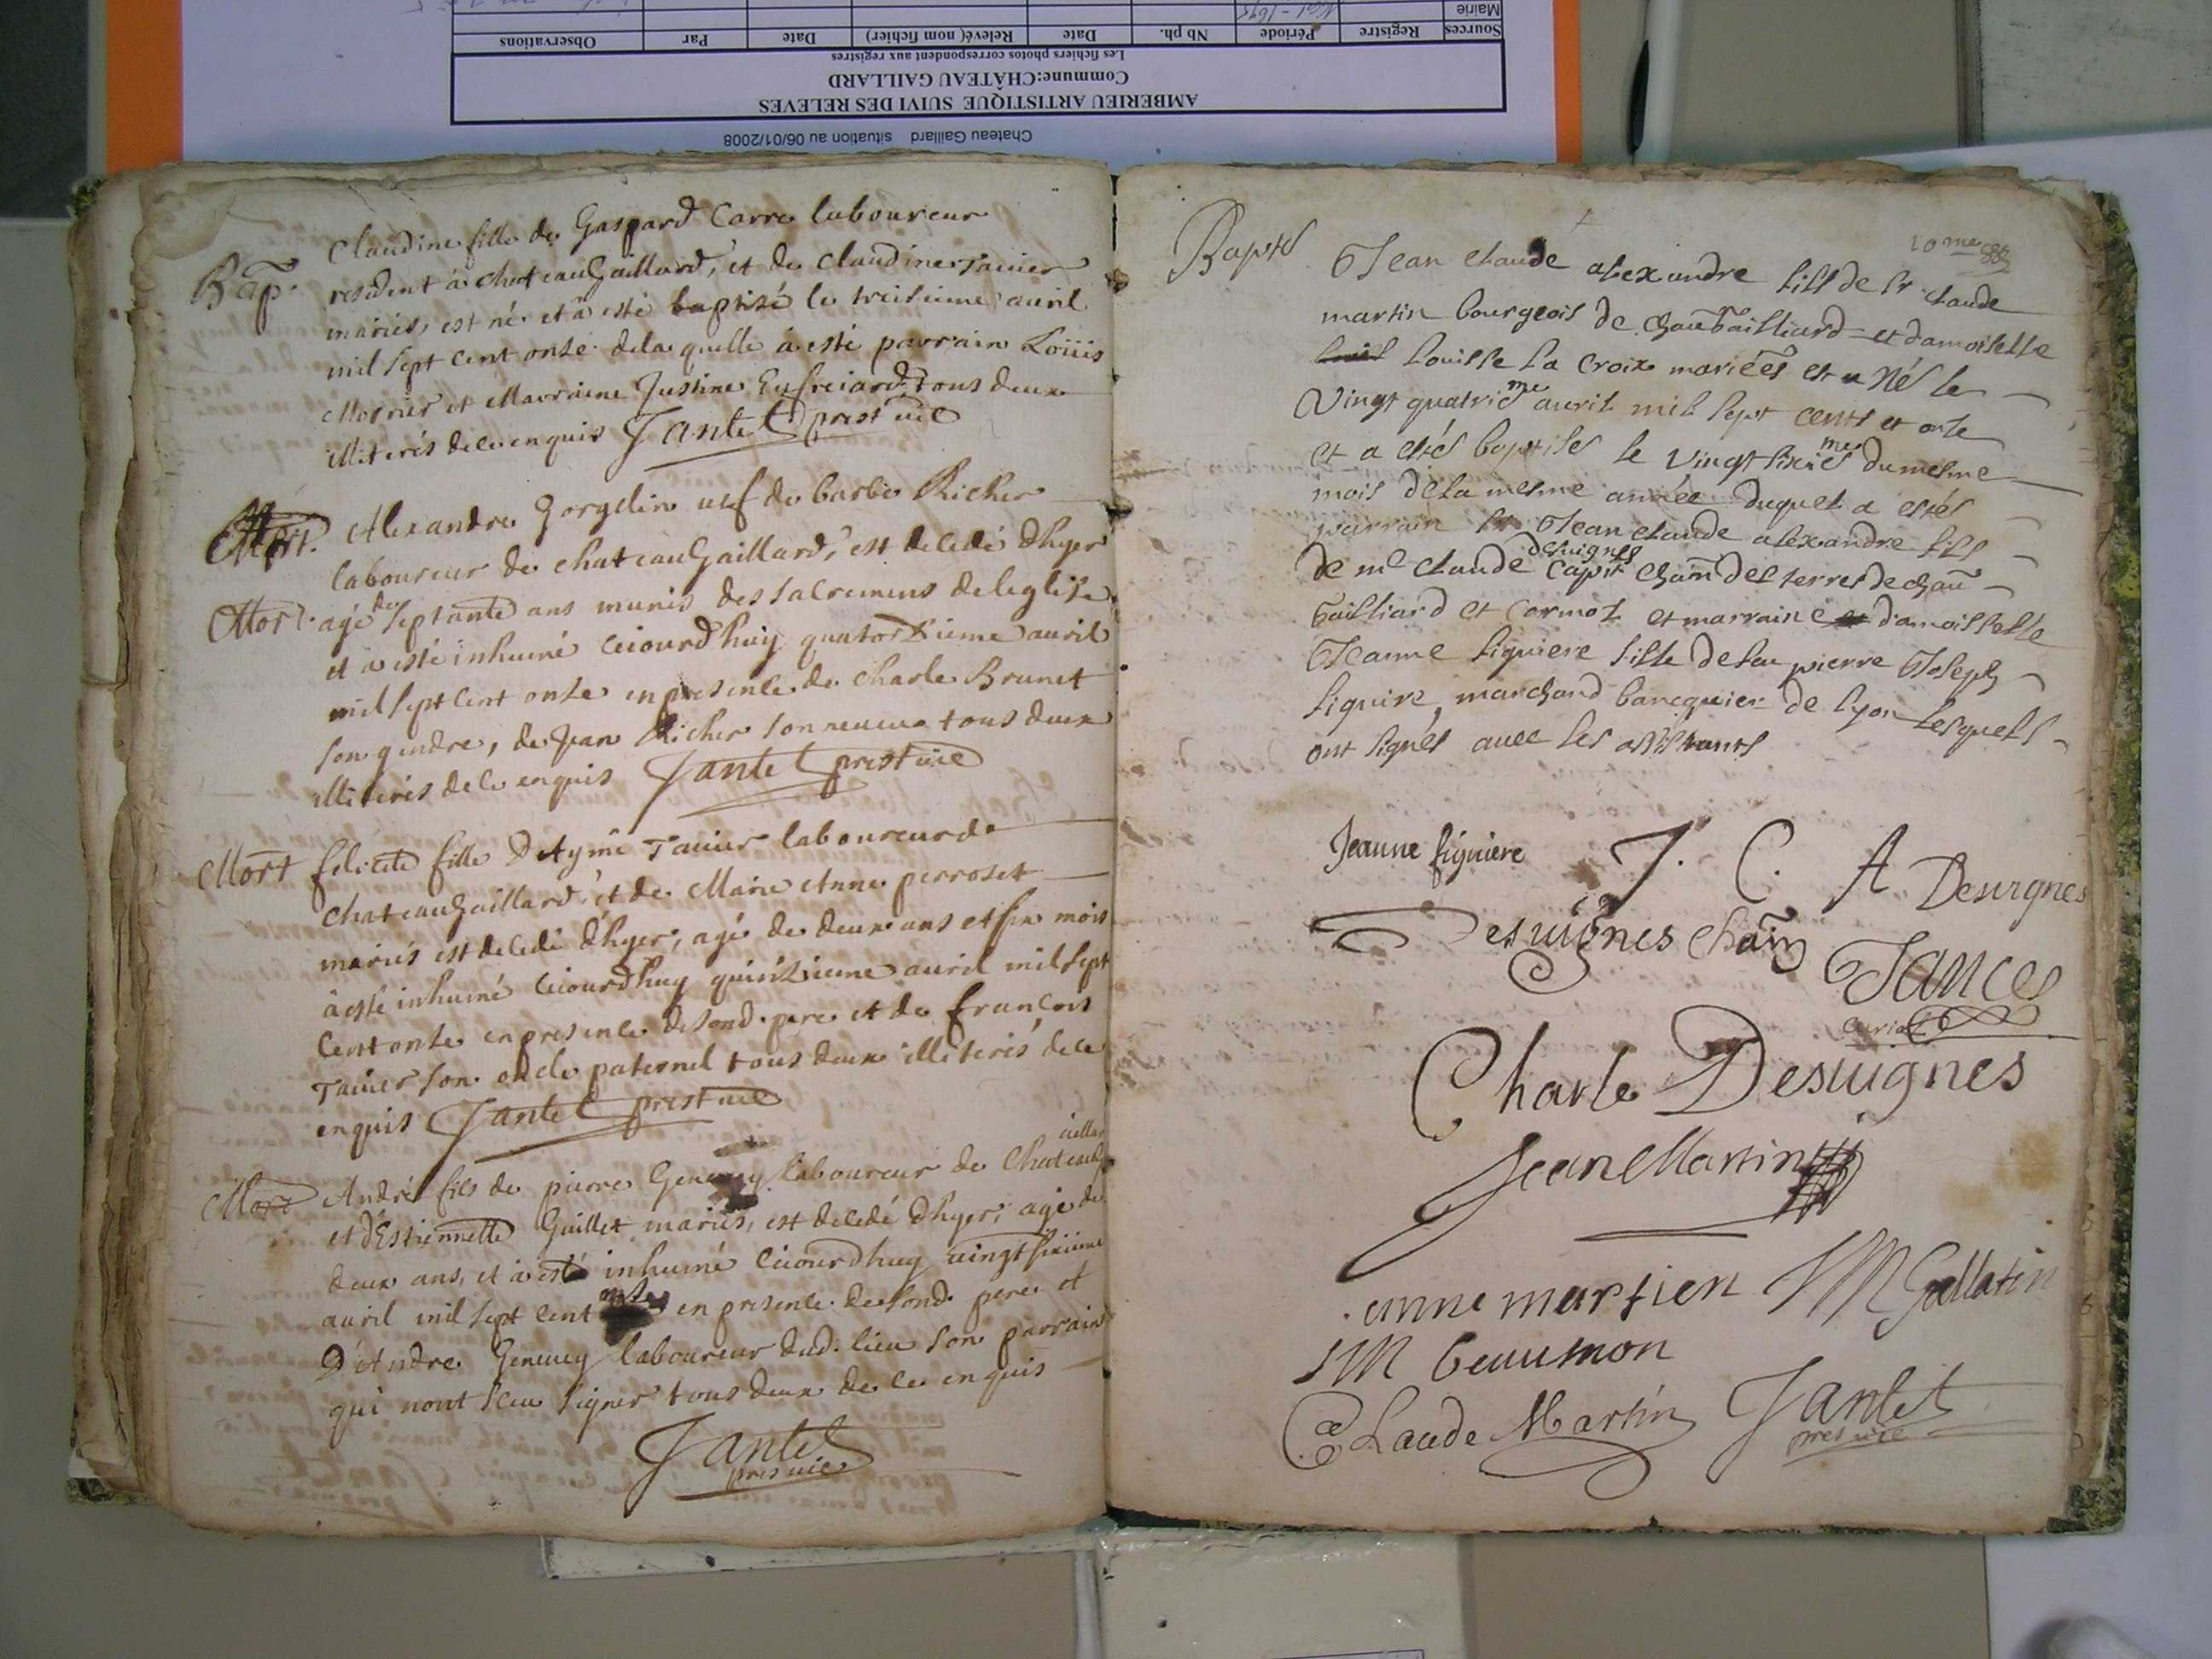 Chateau Gaillard situation au 06/01/2008
AMBERIEU ARTISTIQUE SUIVI DES RELEVES
Commune:CHÂTEAU GAILLARD
Les fichiers photos correspondent aux registres
Sources Registre Période Nb ph. Date Relevé( nom fichier) Date Par Observations
Mairie
Bap.
Claudine fille de Gaspard Carre laboureur
resident à chateauGaillard, et de Claudine Tauier
mariés, est né et à esté baptisé le treisieme auril
mil sept cent onse dela quelle à esté parrain Loüis
et Marraine Justine tous deux
illiterés de ce enquis Jantet prest vic
Mort.
Mort.
Alexandre Gorgelin uef de barbe Richer
laboureur de chateauGaillard, est decedé dhyer
agé de septante ans munis des sacremens deleglise
et à esté inhumé ceiourdhuy quatorzieme auril
mil sept cent onse en presence de Charle Brunet
son gendre, de Jean Richer son neueu tous deux
illiterés dele enquis Jantet prest vic
Mort
felicité fille D'Aymé Tauier laboureur de
chateauGaillard, et de Marie Anne perroset
mariés est decedé dhyer, agé de deux ans et six mois
à esté inhumé ceiourdhuy quinzieme auril mil sept
cent onse en presence de sond. pere et de francois
Tauier son oncle paternel tous deux illiterés de ce
enquis Jantet prest vic
Mort
André fils de pierre Geneuey laboureur de Chateau
et d'Estiennette Guillet mariés, est decedé dhyer, agé de
deux ans, et à esté inhumé ceiourdhuy uingt sixieme
auril mil sept cent onse en presence de sond. pere et
D'Andre Geneuey laboureur dud. lieu son parrain
qui nont sceu signer tous deux de ce enquis
Jantet
pres vic
10me
Bapts
Jean Claude alexandre fils de Sr. Claude
martin bourgeois de Chaûgailliard et damoiselle
Louisse La Croix mariées est a Nés le
Vingt quatriéme auril mil sept cents et onze
et a estés baptises le vingt sixiéme du mesme
mois de la mesme année duquel a estés
parrain Sr. Jean claude alexandre fils
de mr claude desuignes capit Cham des terres de chaû
Gailliard et Cormoz et marraine damoisselle
Jeanne siguiere fille de feu pierre Joseph
siguire, marchand bancquier de Lyon Lesquels
ont signés auec les assistants
Jeanne siguiere J. C. A Desuignes
Desuignes Cham Jances
curial
Charle Desuignes
Jean Martin
anne martien JM Gallatin
JM beaumon
Claude Martin Jantet
pres vic